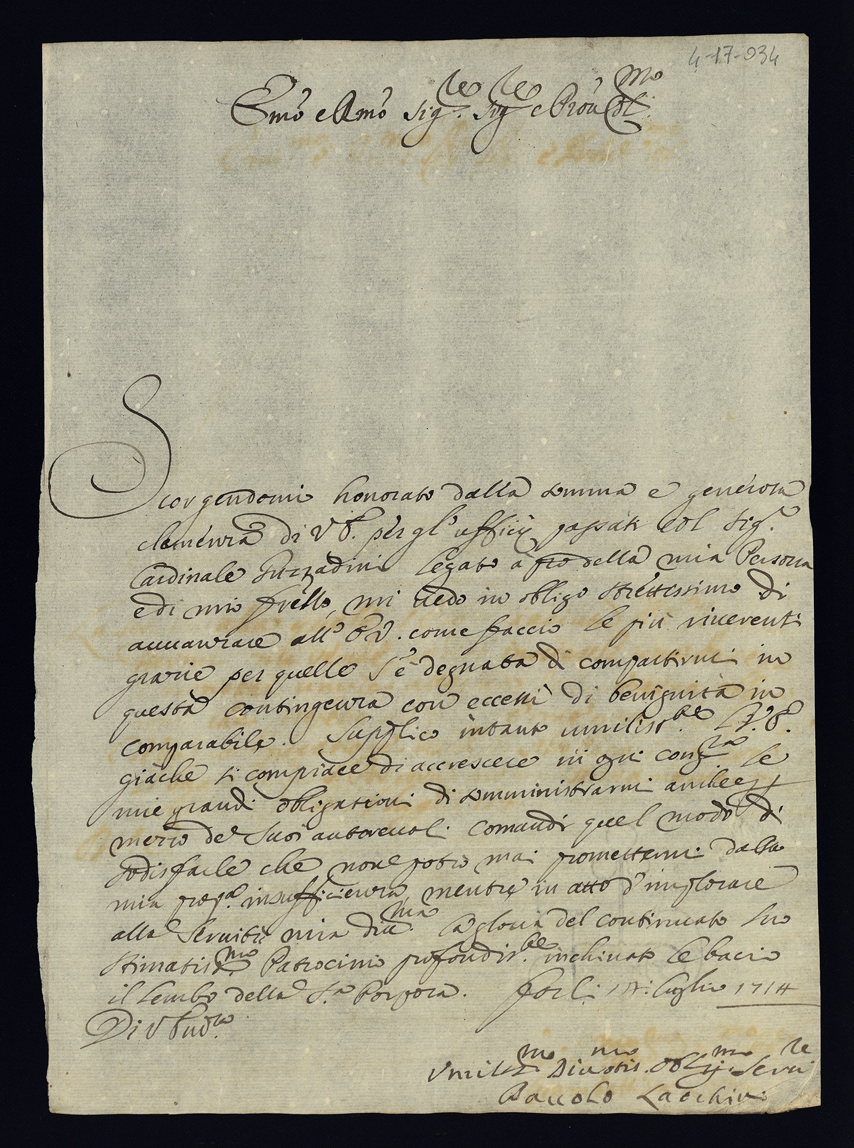 4-17-034
Emo e Rmo Sig.re Sig.re e Pron Colmo
Scorgendomi honorato dalla somma e generosa
clemenza di V E. per gl'ufficij passati col Sig.r
Cardinale Gozzadini Legato a pro della mia Persona
e di mio frello, mi vedo in obligo strettissimo di
avvanzare all' E V. come faccio le più riverenti
grazie per quelle s'è degnata di compartirmi in
questa contingenza con eccessi di benignità in
comparabile. Supplico intanto umiliss.te L'V.E.
giache si compiace di accrescere in ogni cong.ra le
mie grandi obligationi di somministrarmi anche col
mezzo de Suoi autorevoli comandi quel modo di
sodisfarle che non potrò mai promettermi dalla
mia prop.a insufficienza, mentre in atto d'implorare
alla Servitù mia div.ma la gloria del continuato Suo
stimatis.mo Patrocinio profondis.te inchinato le bacio
il Lembo della S.a Porpora. Forlì Luglio 1714
Di V Em.za
Umiliss.mo Divotis.mo Obblig.mo Serv.re
Lacchini